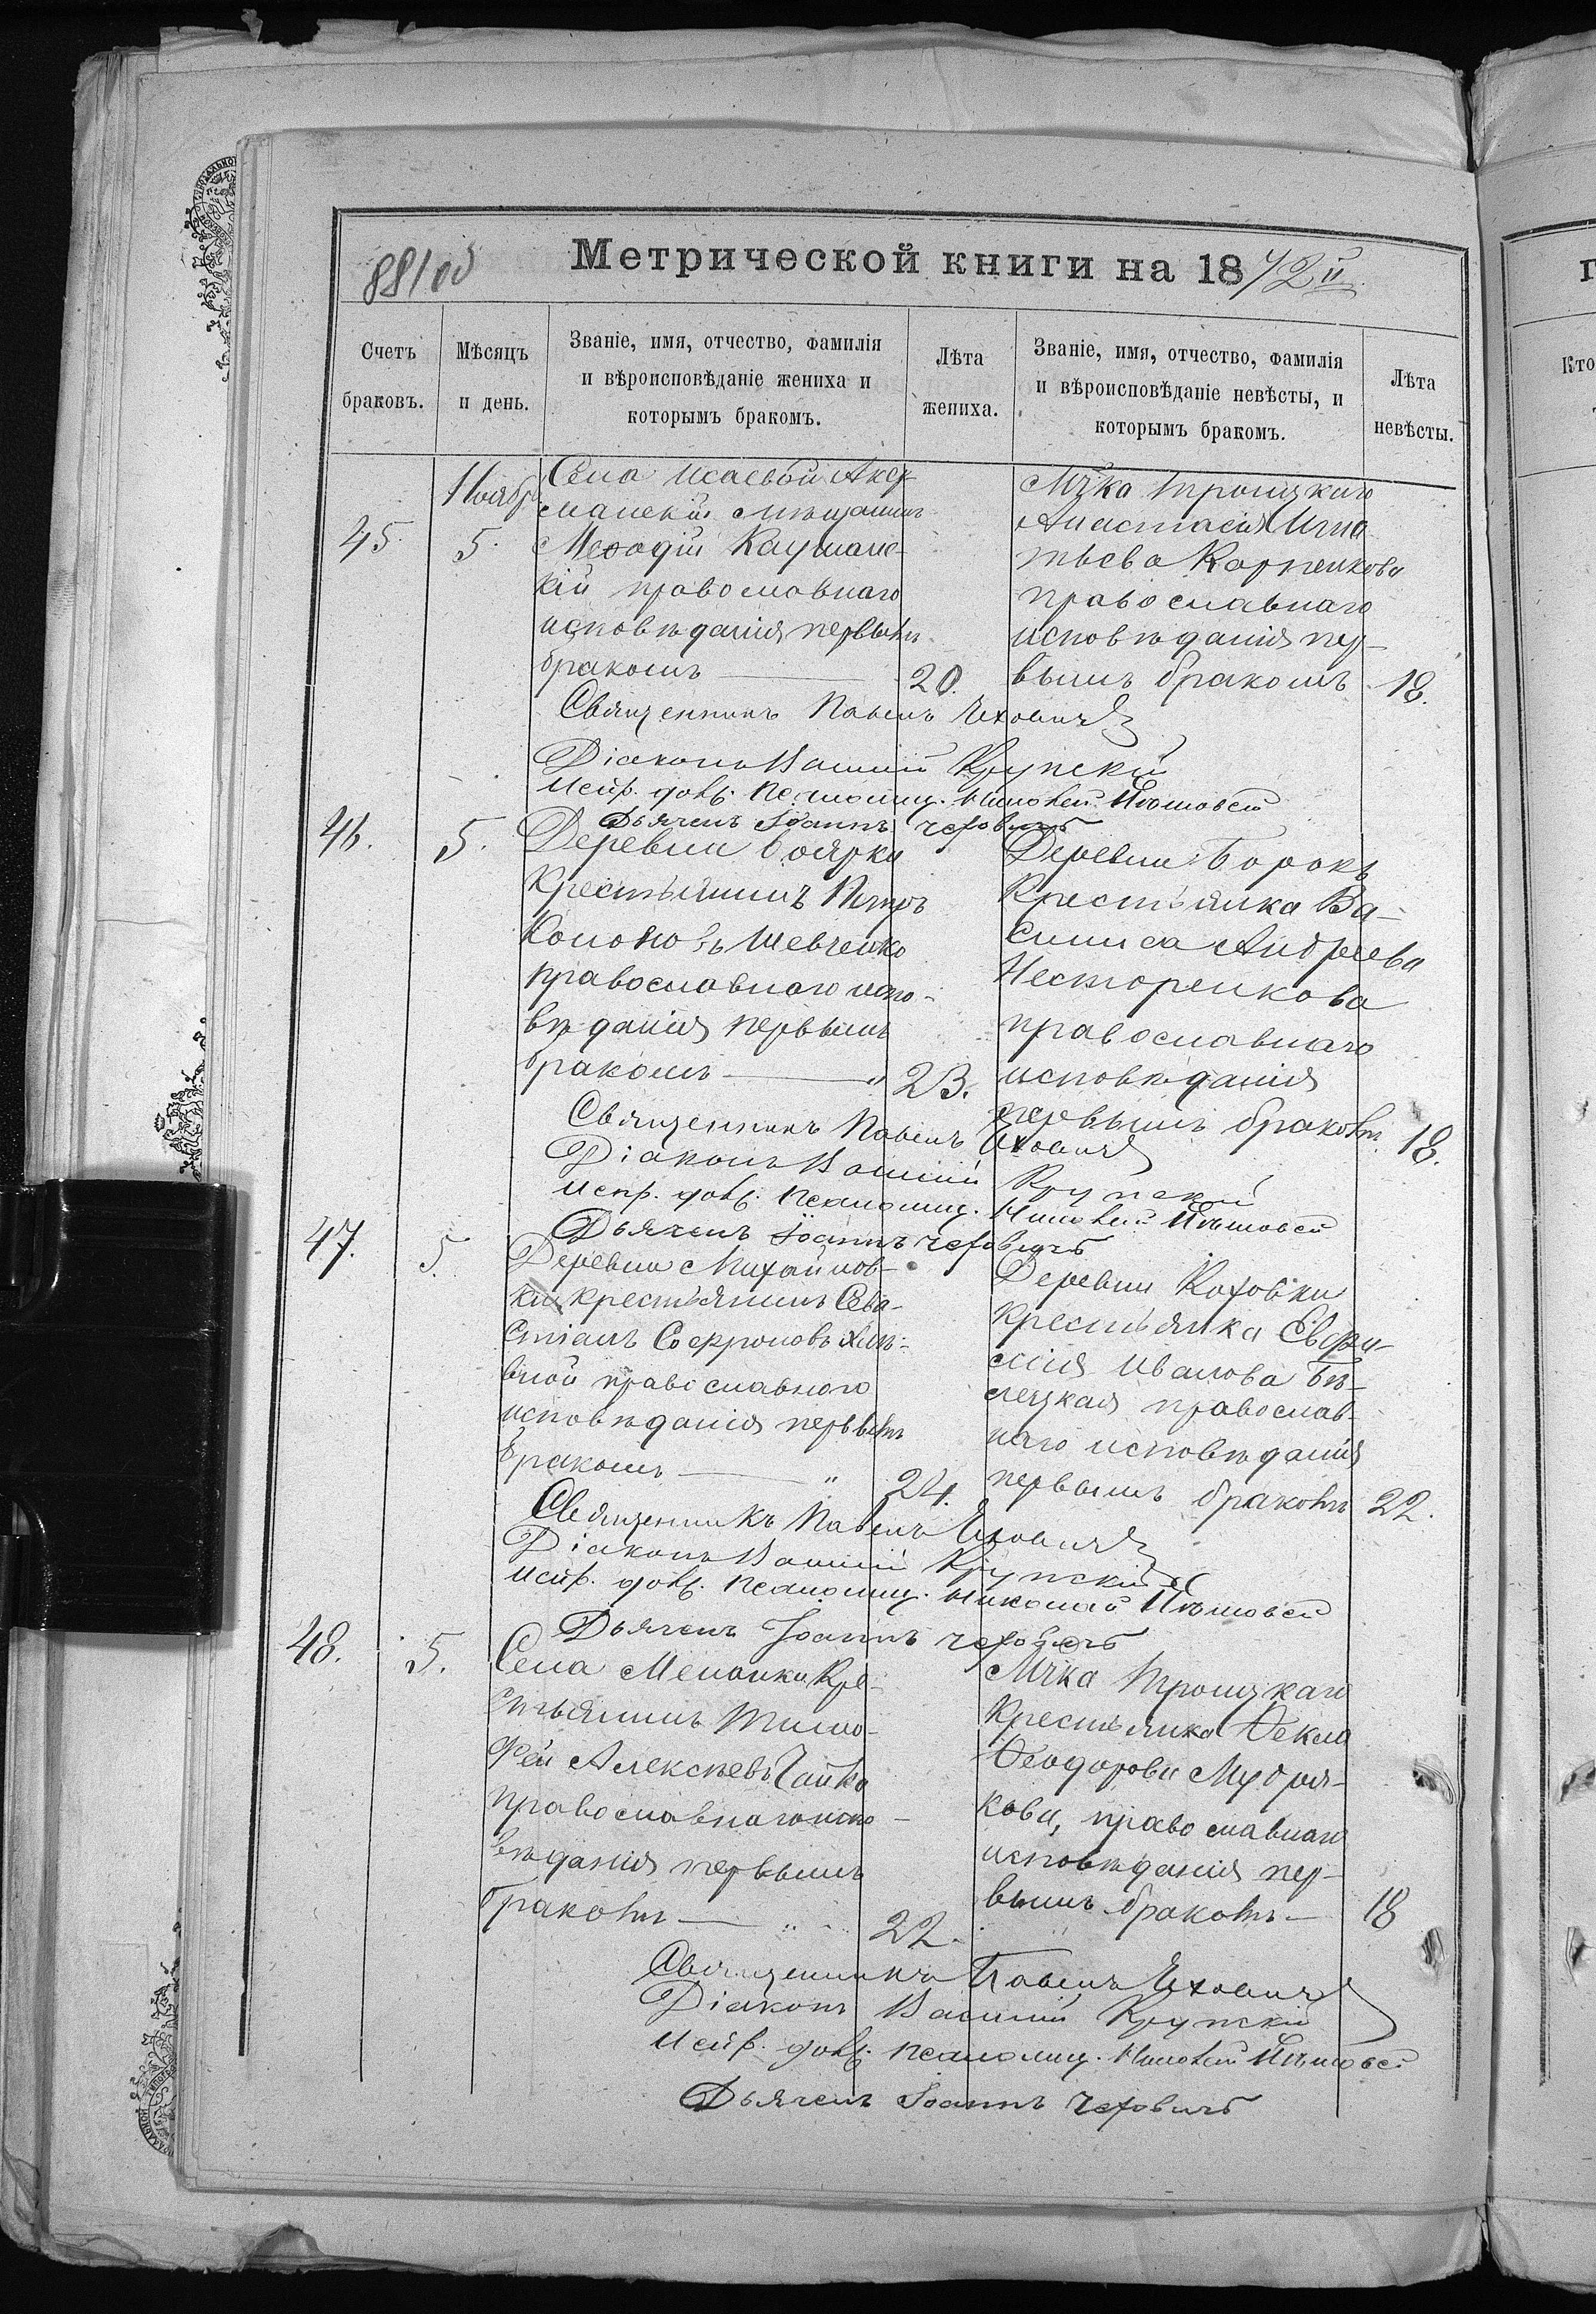 Метрической книги на 1872й
88/об
Счетъ браковъ.
Мѣсяцъ и день.
Званіе, имя, отчество, фамилія
и вѣроисповѣданіе жениха и
которымъ бракомъ.
Лѣта жениха.
Званіе, имя, отчество, фамилія
и вѣроисповѣданіе невѣсты, и
которымъ бракомъ.
Лѣта невѣсты.
45.
Ноябр
5.
Села Исаевой Акер-
манскій мѣщанинъ
Меѳодій Каушанс-
кій православнаго
исповѣданія первымъ
бракомъ
20.
М‑чка Троицкаго
Анастасія Игна-
тьева Карпенкова
православнаго
исповѣданія пер-
вымъ бракомъ
18.
Священникъ Павелъ
Діаконъ Василій Крупскій
Испр. долж. псаломщ. Николай
Дьячекъ Іоаннъ Чеховичъ
46.
5.
Деревни Боярки
Крестьянинъ Петръ
Кононовъ Шевченко
православнаго испо-
вѣданія первымъ
бракомъ
23.
Деревни Борокъ
Крестьянка Ва-
силиса Андреева
Несторенкова
православнаго
исповѣданія
первымъ бракомъ
18.
Священникъ Павелъ
Діаконъ Василій Крупскій
Испр. долж. псаломщ. Николай
Дьячекъ Іоаннъ Чеховичъ
47.
5.
Деревни Михайлов-
ки крестьянинъ Сева-
стіанъ Софроновъ Хлѣ-
вной православнаго
исповѣданія первымъ
бракомъ
24.
Деревни Коховки
крестьянка Евфи-
мія Иванова Бѣ-
лецкая православ-
наго исповѣданія
первымъ бракомъ
22.
Священникъ Павелъ
Діаконъ Василій Крупскій
Испр. долж. псаломщ. Николай
Дьячекъ Іоаннъ Чеховичъ
48.
5.
Села Мепанки Кре-
стьянинъ Тимо-
фей Алексѣевъ Чайка
православнаго испо-
вѣданія первымъ
бракомъ
22.
М‑чка Троицкаго
Крестьянка Ѳекла
Ѳеодорова Мудря-
кова, православнаго
исповѣданія пер-
вымъ бракомъ
18
Священникъ Павелъ
Діаконъ Василій Крупскій
Испр. долж. псаломщ. Николай
Дьячекъ Іоаннъ Чеховичъ